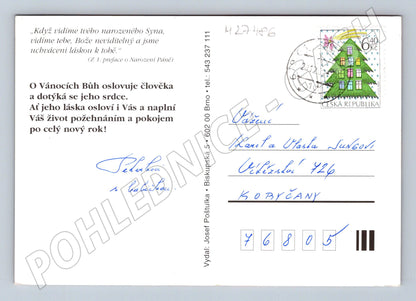 „Když vidíme tvého narozeného Syna,
vidíme tebe, Bože neviditelný a jsme
uchváceni láskou k tobě.“
(z 1. preface o Narození Páně)
O Vánocích Bůh oslovuje člověka
a dotýká se jeho srdce.
Ať jeho láska osloví i Vás a naplní
Váš život požehnáním a pokojem
po celý nový rok!
Vydal: Josef Pošťulka • Biskupský 5 • 602 00 Brno • tel.: 543 237 111
6,40
ČESKÁ REPUBLIKA
Vážení
Karel a Vlasta
Vítězství 726
KORYČANY
76805
POHLEDNICE